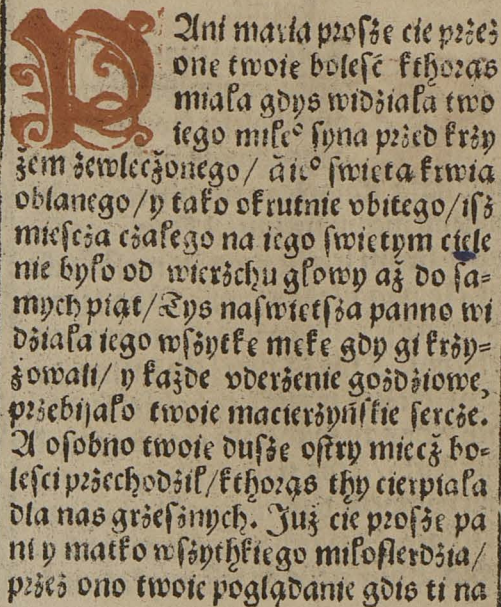 PAni maria prosżę cie przez
onę twoię bolesć kthorąs
miała gdys widziała two
iego miłeᵒ syna przed krzy
żem zewleczonego/ a ieᵒ swiętą krwią
oblanego/y tako okrutnie vbitego/isz
miescza czałego na iego swiętym ciele
nie było od wierzchu głowy aż do sa⸗
mych piąt/Tys naswiętsza panno wi
działa iego wszytkę mękę gdy gi krzy⸗
żowali/ y każde vderzenie goździowe,
przebijało twoie macierzyńskie sercze.
A osobno twoię duszę ostry miecz bo⸗
lesci przechodził/kthorąs thy cierpiała
dla nas grzesznych. Już cie proszę pa
ni y matko wszythkiego miłosierdzia/
przez ono twoie poglądanie gdis ti na